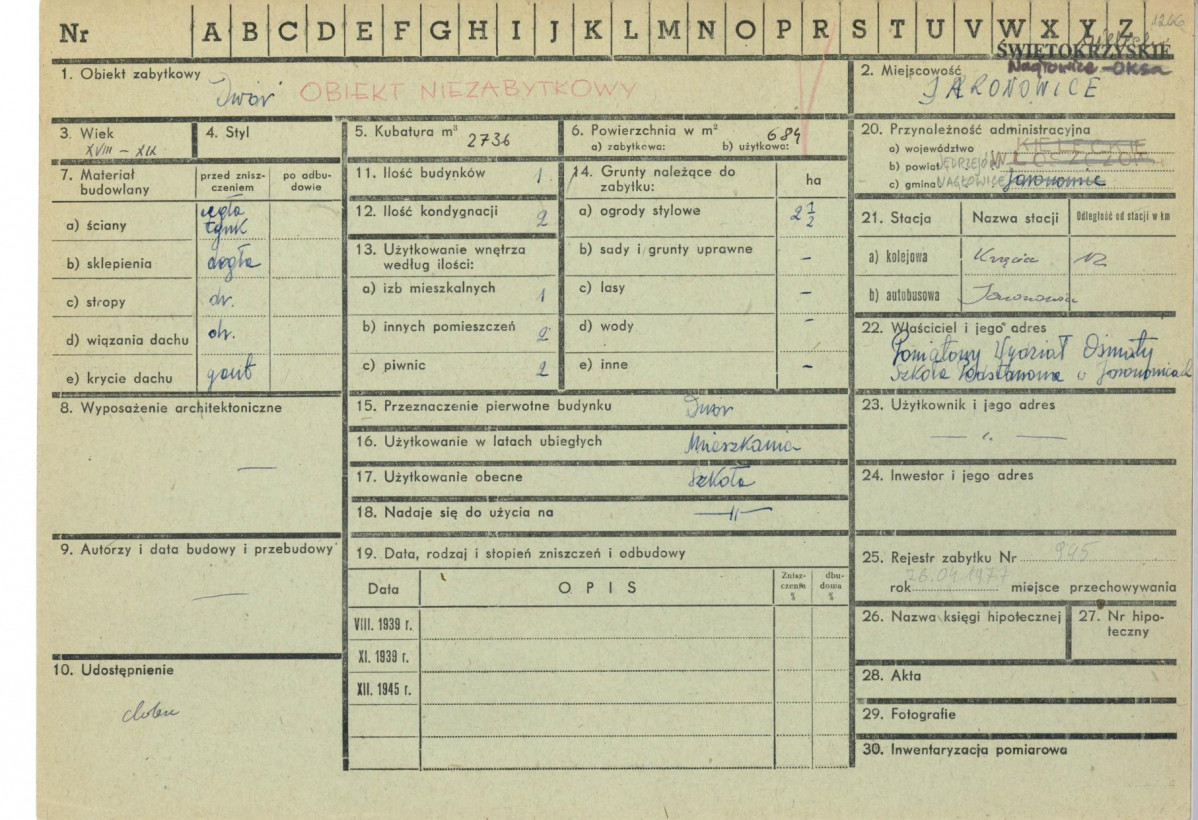 Nr A B C D E F G H I J K L M N O P R S T U V W X Y Z 1266
ŚWIĘTOKRZYSKIE
Nagłowice-Oksa
1. Obiekt zabytkowy
Dwór OBIEKT NIEZABYTKOWY
2. Miejscowość
JARONOWICE
3. Wiek
XVIII – XIX
4. Styl
5. Kubatura m³ 2736
6. Powierzchnia w m² 684
a) zabytkowa: b) użytkowa:
7. Materiał budowlany
przed zniszczeniem
po odbudowie
a) ściany cegła tynk
b) sklepienia cegła
c) stropy dr.
d) wiązania dachu dr.
e) krycie dachu gont
8. Wyposażenie architektoniczne
—
9. Autorzy i data budowy i przebudowy
—
10. Udostępnienie
11. Ilość budynków 1.
12. Ilość kondygnacji 2
13. Użytkowanie wnętrza według ilości:
a) izb mieszkalnych 1
b) innych pomieszczeń 2
c) piwnic 2
14. Grunty należące do zabytku:
ha
a) ogrody stylowe 2 1/2
b) sady i grunty uprawne –
c) lasy –
d) wody –
e) inne –
15. Przeznaczenie pierwotne budynku Dwór
16. Użytkowanie w latach ubiegłych Mieszkania
17. Użytkowanie obecne Szkoła
18. Nadaje się do użycia na —"—
19. Data, rodzaj i stopień zniszczeń i odbudowy
Data
OPIS
Zniszczenia %
dbudowa %
VIII. 1939 r.
XI. 1939 r.
XII. 1945 r.
20. Przynależność administracyjna
a) województwo KIELECKIE
b) powiat JĘDRZEJÓW WŁOSZCZOW
c) gmina NAGŁOWICE Jaronowice
21. Stacja
Nazwa stacji
Odległość od stacji w km
a) kolejowa 12
b) autobusowa Jaronowice
22. Właściciel i jego adres
Powiatowy Wydział Oświaty
Szkoła Podstawowa w Jaronowicach
23. Użytkownik i jego adres
— " —
24. Inwestor i jego adres
25. Rejestr zabytku Nr 945
rok 28.04.1977 miejsce przechowywania
26. Nazwa księgi hipotecznej
27. Nr hipoteczny
28. Akta
29. Fotografie
30. Inwentaryzacja pomiarowa